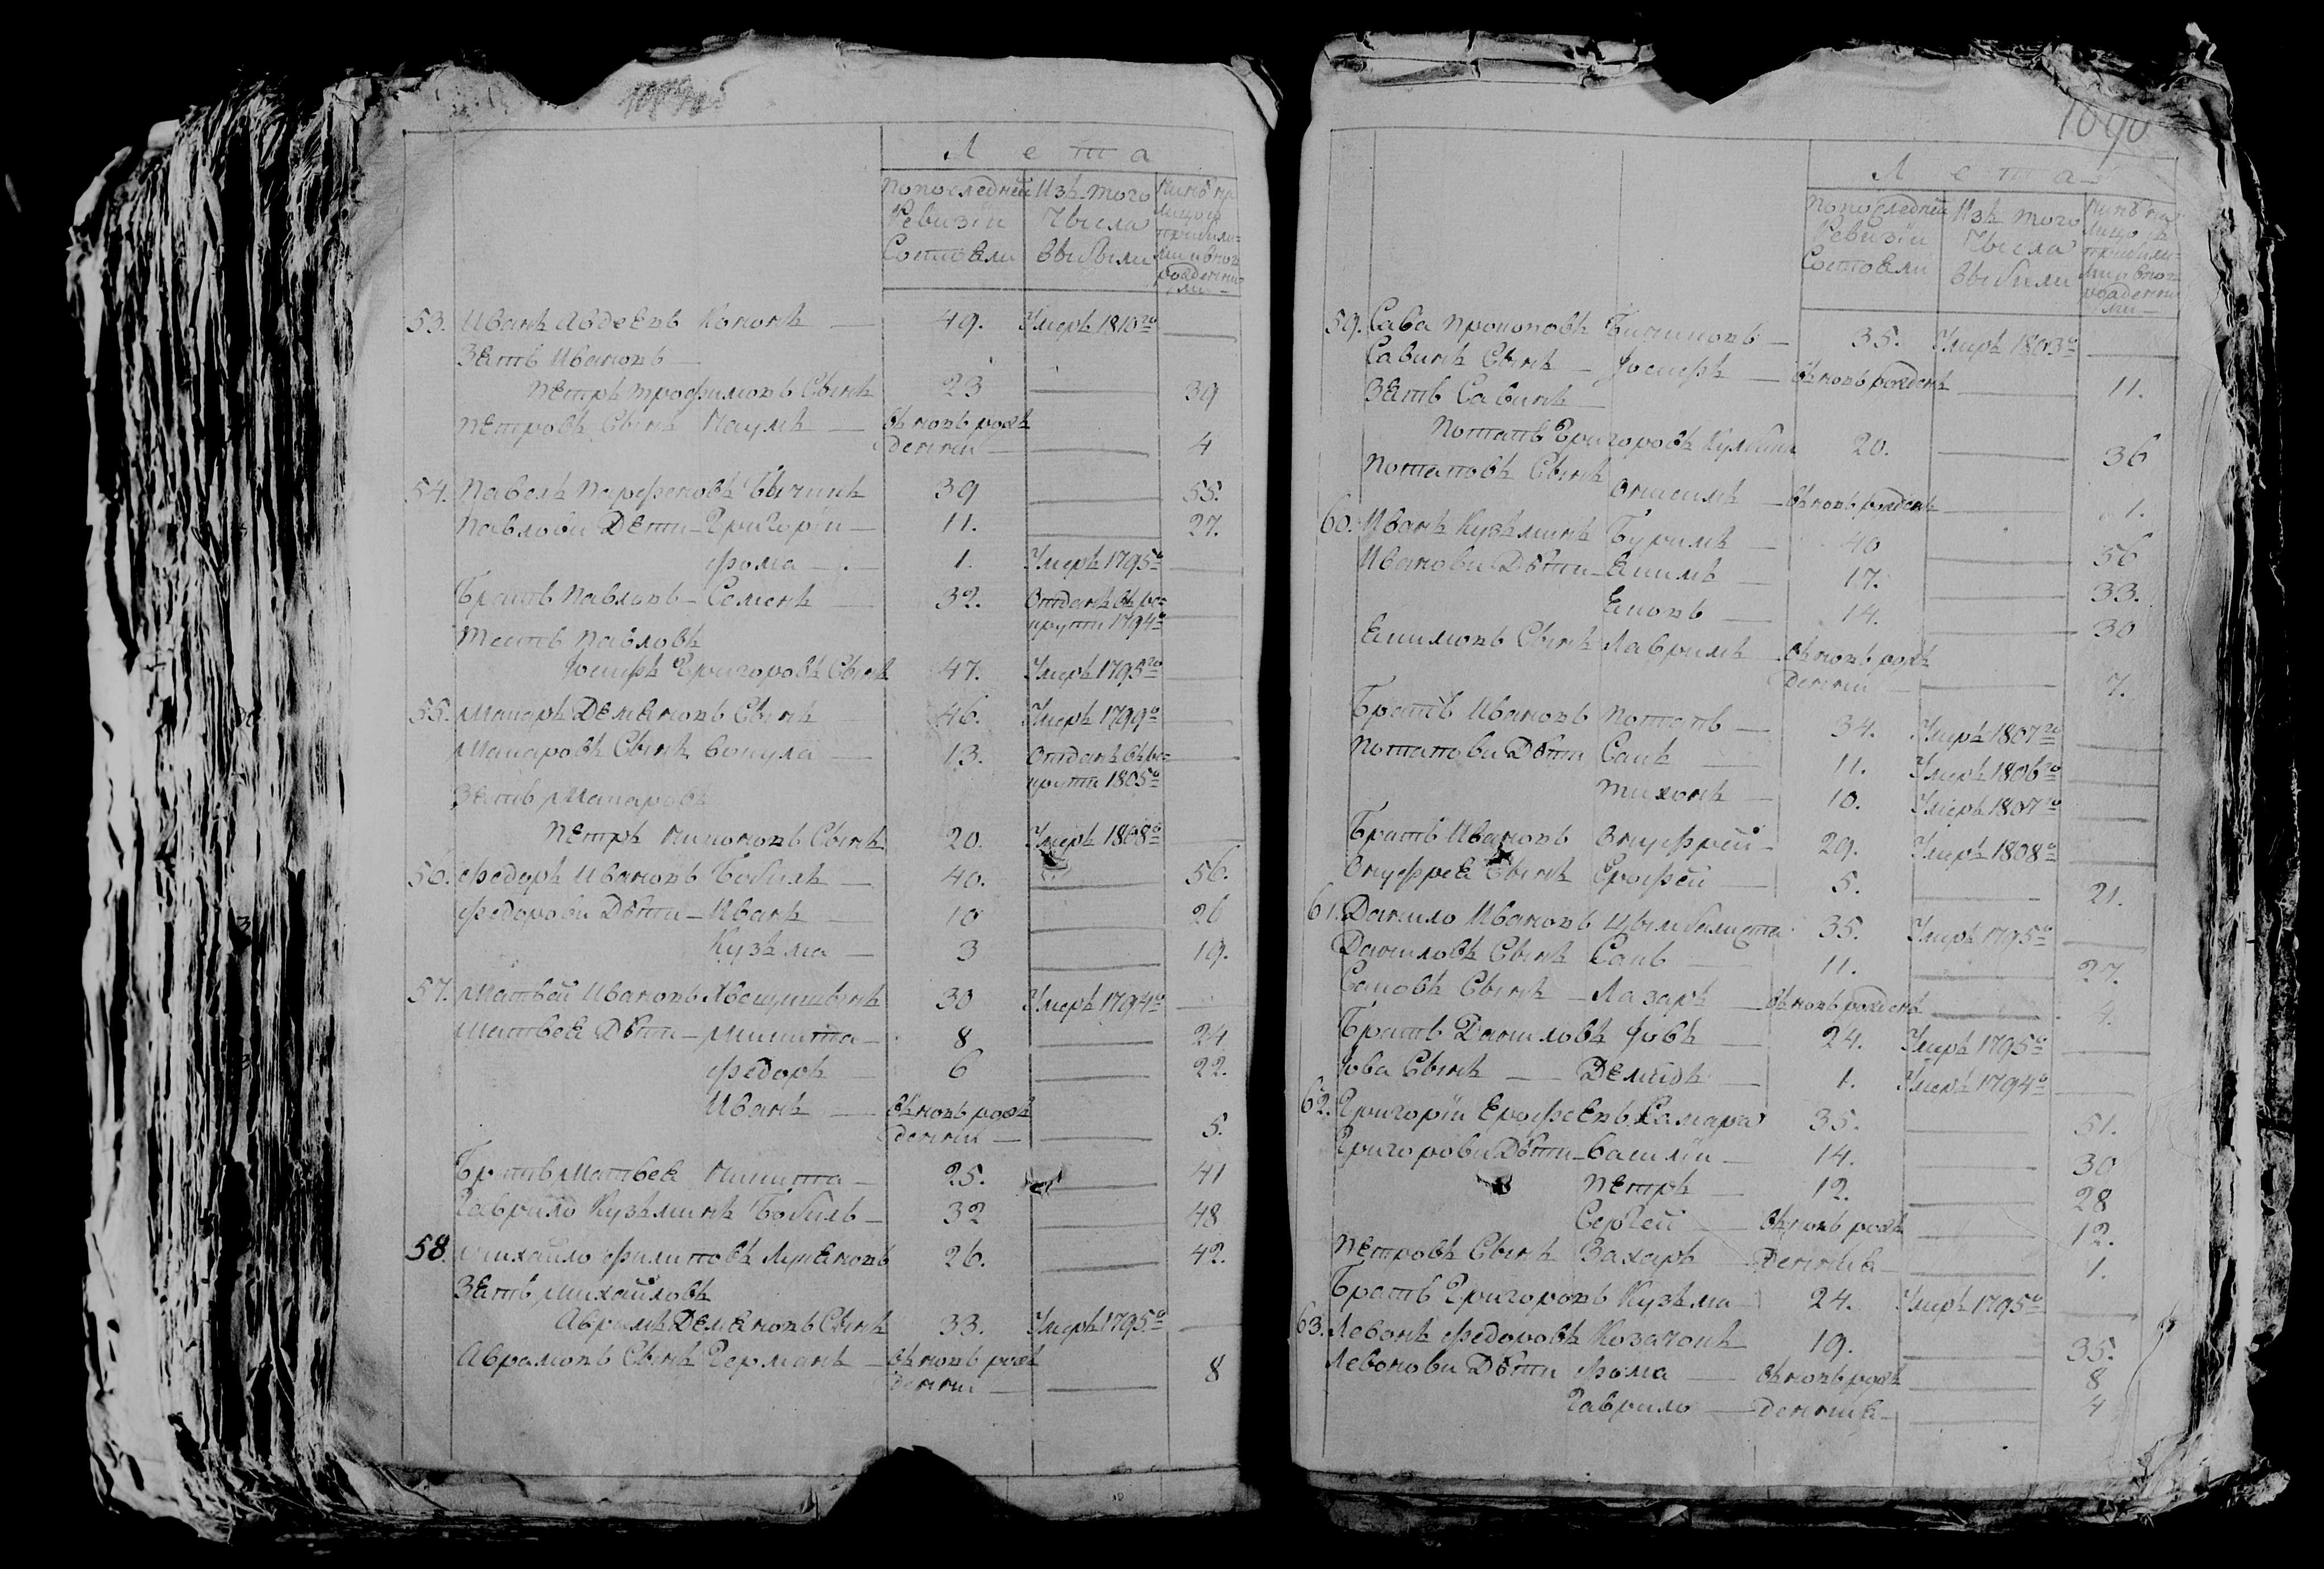 Лета
По последней Ревизiи Состояли
Изъ того Числа выбыли
53. Иванъ Авдеевъ Кононъ — 49. Умеръ 1810го —
Зять Ивановъ —
Петръ Трофимовъ Сынъ 23 — 39
Петровъ Сынъ Наумъ — въновь рож
денни — 4
54. Павелъ Парфеновъ Бычинъ 39 — 55.
Павлови Дети — Григорiи — 11. — 27.
Фома — 1. Умеръ 1795го —
Братъ Павловъ — Семенъ — 32. Отданъ въ ре=
круты 1794го —
Тесть Павловъ
Іосифъ Григоровъ Сынъ 47. Умеръ 1795го —
55. Макаръ Демяновъ Сынъ 46. Умеръ 1799го —
Макаровъ Сынъ Вакула — 13. Отданъ въ ре=
круты 1805го —
Зять Макаровъ
Петръ Никоновъ Сынъ 20. Умеръ 1808го —
56. Федоръ Ивановъ Бобиль — 40. — 56.
Федорови Дѣти — Иванъ — 10 — 26
Кузьма — 3 — 19.
57. Матвей Ивановъ 30 Умеръ 1794го —
Матвея Дѣти — Микита — 8 — 24
Федоръ — 6 — 22.
Иванъ — въновь рож
денни — 5.
Братъ Матвея Никита — 25. — 41
Гаврило Кузьминъ Бобиль — 32 — 48
58. Михайло Филиповъ 26. — 42.
Зять Михайловъ
Аврамъ Демяновъ Сынъ 33. Умеръ 1795го —
Аврамовъ Сынъ Германъ — въновь рож
денни — 8
1090
Лета
По последней Ревизiи Состояли
Изъ того Числа выбили
59. Сава Прокоповъ — 35. Умеръ 1803го —
Савинъ Сынъ — Іосифъ — въновь рожденъ — 11.
Зять Савинъ —
Потапъ Григоровъ 20. — 36
Потаповъ Сынъ
Онисимъ — въновь рожденъ — 1.
60. Иванъ Кузьминъ Буримъ — 40 — 56
Иванови Дѣти — Якимъ — 17. — 33.
Яковъ — 14. — 30
Якимовъ Сынъ Лавримъ — въновь рож
денни — 7.
Братъ Ивановъ Потапъ — 34. Умеръ 1807го —
Потапови Дѣти Сакъ — 11. Умеръ 1806го —
Тихонъ — 10. Умеръ 1807го —
Братъ Ивановъ Онуфрей — 29. Умеръ 1808го —
Онуфрея Сынъ Ерофей — 5. — 21.
61. Данило Ивановъ Цымбалиста 35. Умеръ 1795го —
Даниловъ Сынъ Сакъ — 11. — 27.
Саковъ Сынъ — Лазаръ — въновь рожденъ — 4.
Братъ Даниловъ Іовъ — 24. Умеръ 1795го —
Іова Сынъ — Демидъ — 1. Умеръ 1794го —
62. Григорiи Ерофеевъ Самара 35. — 51.
Григорови Дѣти — Василiи — 14. — 30
Петръ — 12. — 28
Сергей — въновь рож — 12.
Петровъ Сынъ Захаръ — денния — 1.
Братъ Григоровъ Кузьма — 24. Умеръ 1795го —
63. Левонъ Федоровъ Козачокъ 19. — 35.
Левонови Дѣти Фома — въновь рож — 8
Гаврило — денния — 4